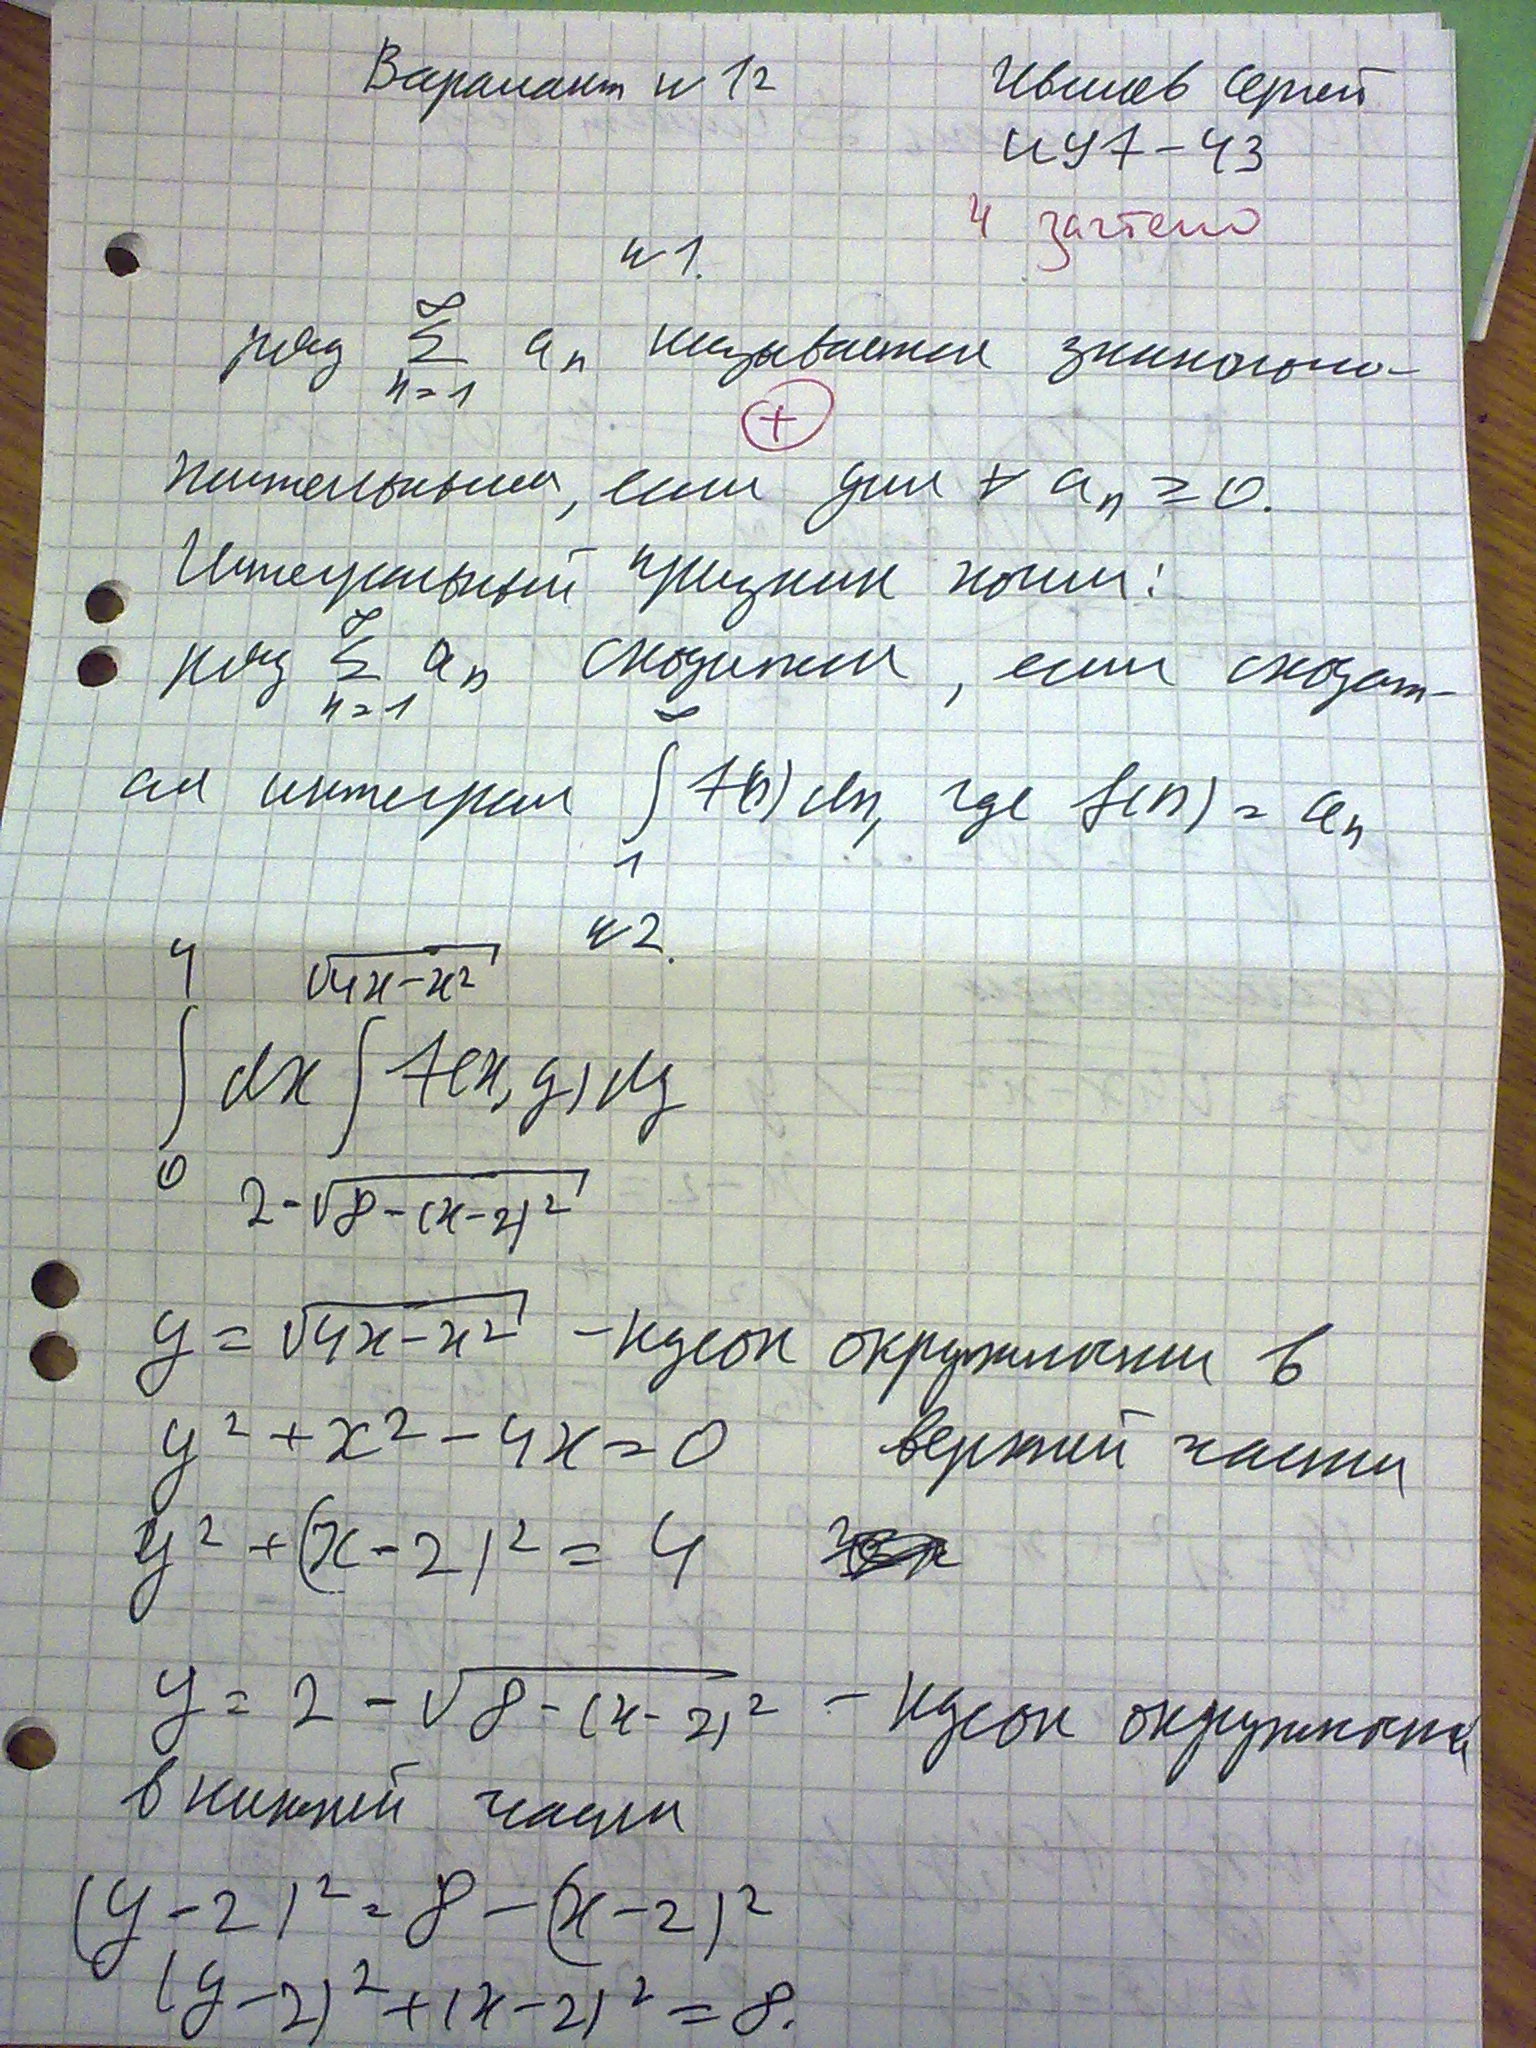 Вариант №12
Сергей
ИУ7-43
4 зачтено
№1.
ряд ∑ aₙ называется знакополо-
∞
n=1
+
жительным, если для ∀ aₙ ≥ 0.
Интегральный признак Коши:
ряд ∑ aₙ сходится, если сходит-
∞
n=1
ся интеграл ∫ f(n) dn, где f(n) = aₙ
∞
1
№2.
4 √(4x-x²)
∫ dx ∫ f(x, y) dy
0 2-√(8-(x-2)²)
y = √(4x-x²) - кусок окружности в
y² + x² - 4x = 0 верхней части
y² + (x-2)² = 4
y = 2 - √(8-(x-2)²) - кусок окружности
в нижней части
(y-2)² = 8 - (x-2)²
(y-2)² + (x-2)² = 8.